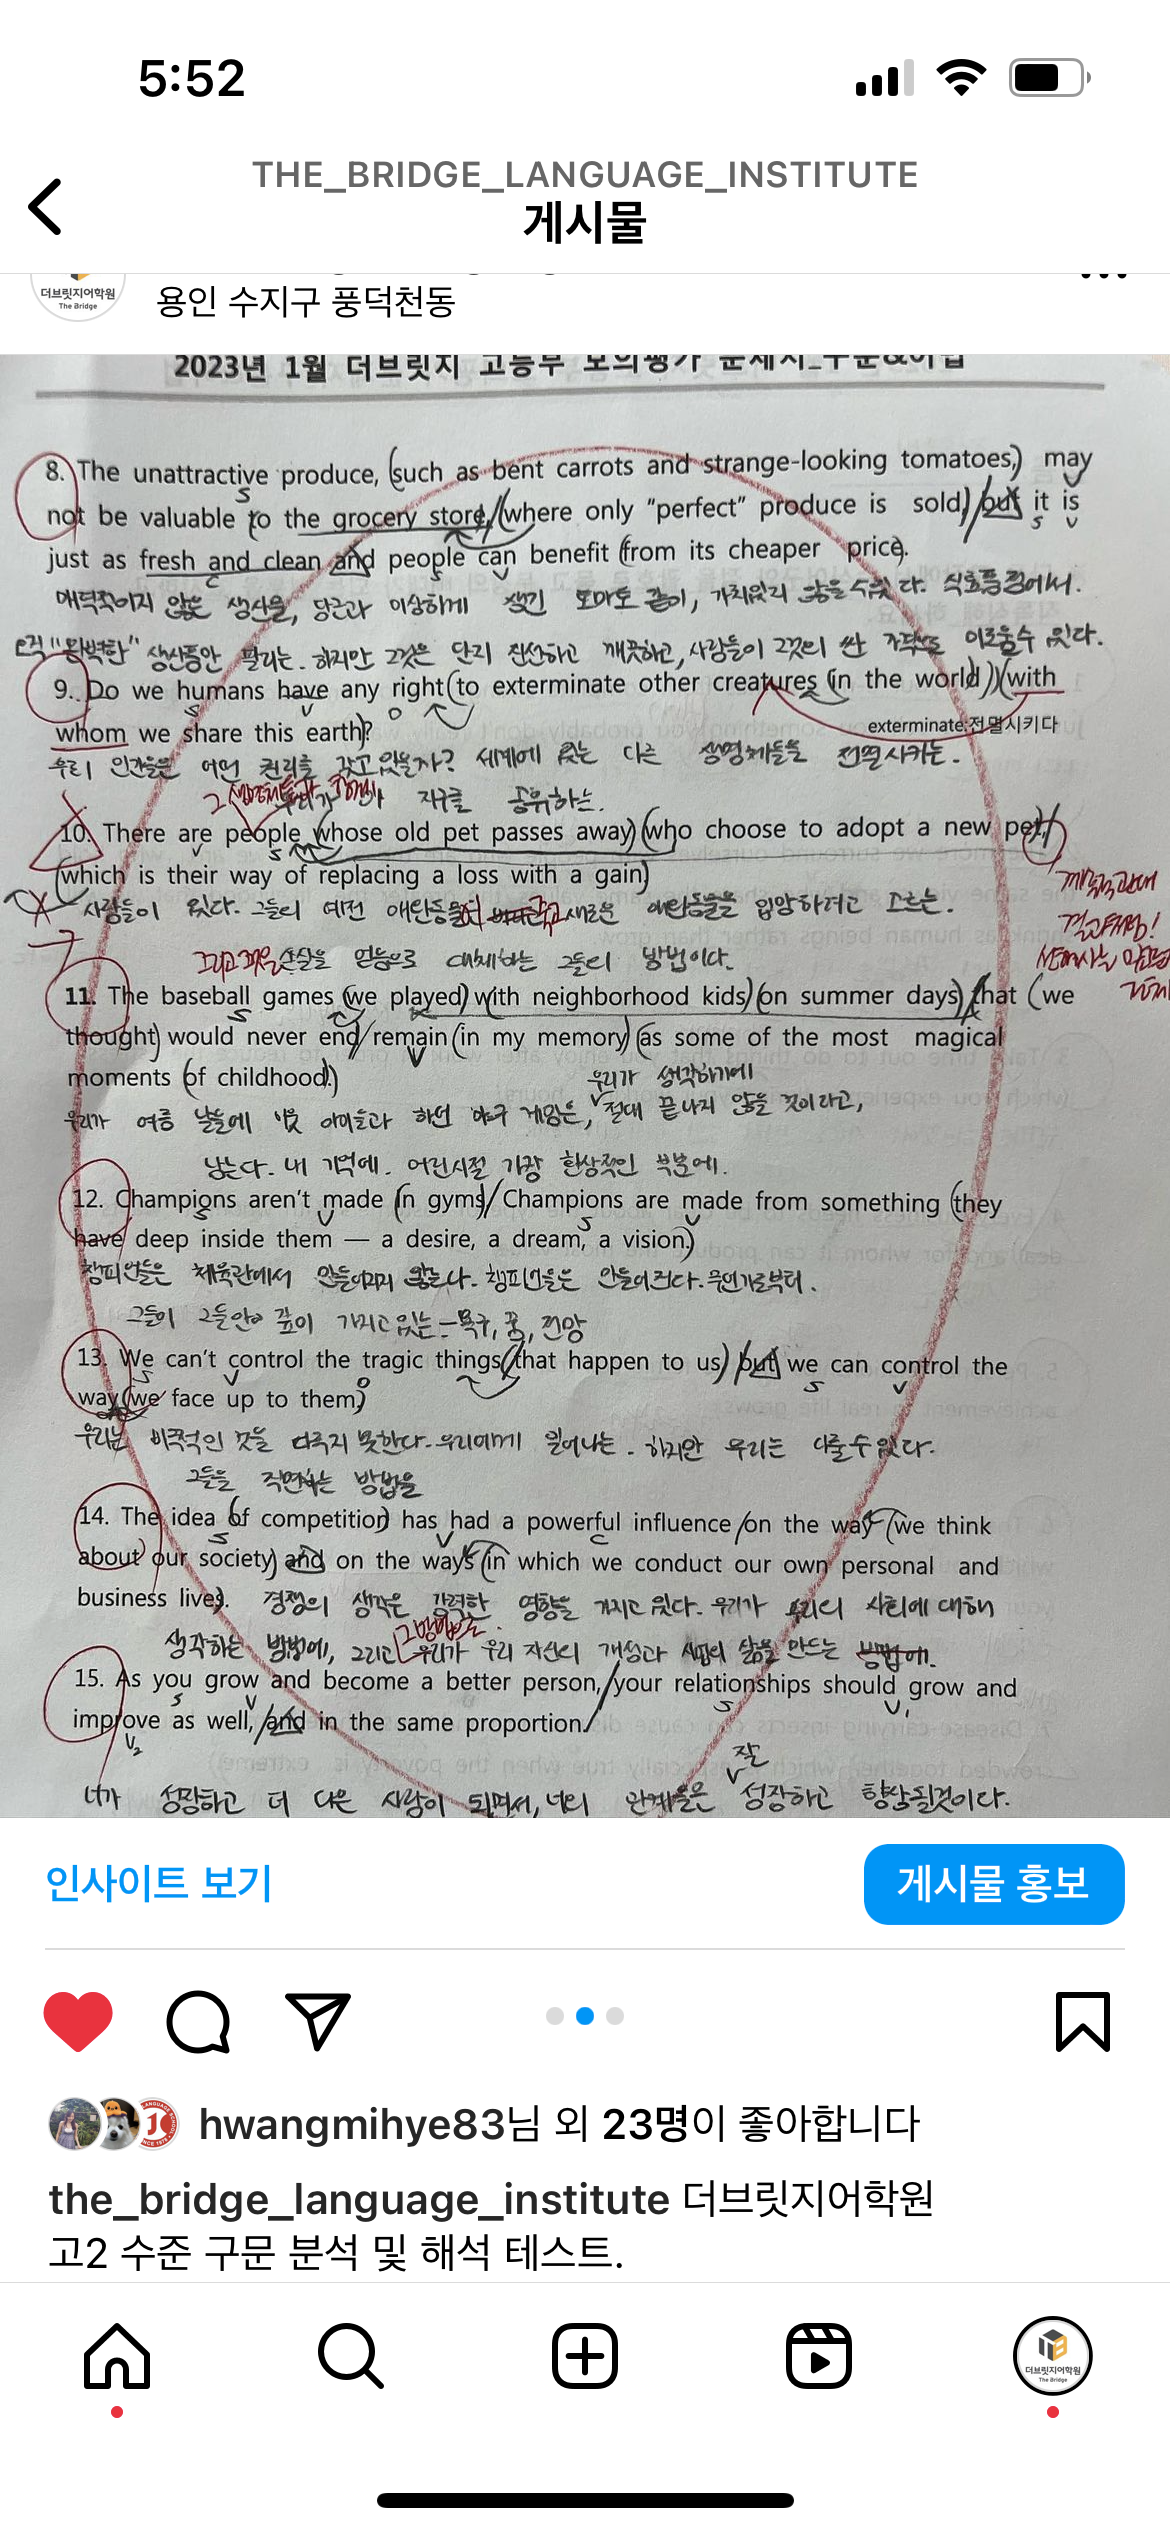 5:52
THE_BRIDGE_LANGUAGE_INSTITUTE
게시물
더브릿지어학원
The Bridge
용인 수지구 풍덕천동
2023년 1월 더브릿지 고등부 모의평가 문제지_구문&어법
8. The unattractive produce, (such as bent carrots and strange-looking tomatoes,) may
not be valuable to the grocery store, (where only “perfect” produce is sold,) but it is
just as fresh and clean and people can benefit (from its cheaper price).
매력적이지 않은 생산물, 당근과 이상하게 생긴 토마토 같이, 가치있지 않을 수 있다. 식료품점에서.
오직 "완벽한" 생산품만 팔리는. 하지만 그것은 단지 신선하고 깨끗하고, 사람들이 그것의 싼 가격으로 이로울수 있다.
9. Do we humans have any right (to exterminate other creatures (in the world)) (with
exterminate:전멸시키다
whom we share this earth)?
우리 인간들은 어떤 권리를 갖고 있을까? 세계에 있는 다른 생명체들을 전멸시키는.
그 생명체들과 함께 우리가 지구를 공유하는.
10. There are people (whose old pet passes away) (who choose to adopt a new pet,)
(which is their way of replacing a loss with a gain)
사람들이 있다. 그들의 예전 애완동물이 죽고 새로운 애완동물을 입양하려고 고르는.
그리고 그것은 손실을 얻음으로 대체하는 그들의 방법이다.
11. The baseball games (we played) with neighborhood kids) (on summer days) that (we
thought) would never end/remain (in my memory) (as some of the most magical
moments (of childhood.)
우리가 생각하기에
우리가 여름 날들에 이웃 아이들과 하던 야구 게임은, 절대 끝나지 않을 것이라고,
남는다. 내 기억에. 어린시절 가장 환상적인 부분에.
12. Champions aren’t made (in gyms) / Champions are made from something (they
have deep inside them — a desire, a dream, a vision.)
챔피언들은 체육관에서 만들어지지 않는다. 챔피언들은 만들어진다. 무언가로부터.
그들이 그들안에 깊이 가지고 있는 - 욕구, 꿈, 전망
13. We can’t control the tragic things (that happen to us) but we can control the
way (we face up to them)
우리는 비극적인 것을 다루지 못한다. 우리에게 일어나는. 하지만 우리는 다룰 수 있다.
그들을 직면하는 방법을
14. The idea (of competition) has had a powerful influence /on the way (we think
about our society) and on the ways (in which we conduct our own personal and
business lives).
경쟁의 생각은 강력한 영향을 가지고 있다. 우리가 우리의 사회에 대해
생각하는 방법에, 그리고 우리가 우리 자신의 개성과 사업의 삶을 만드는
15. As you grow and become a better person, /your relationships should grow and
improve as well, /and in the same proportion.
잘
너가 성장하고 더 나은 사람이 되면서, 너의 관계들은 성장하고 향상될것이다.
인사이트 보기
게시물 홍보
hwangmihye83님 외 23명이 좋아합니다
the_bridge_language_institute 더브릿지어학원
고2 수준 구문 분석 및 해석 테스트.
더브릿지어학원
The Bridge